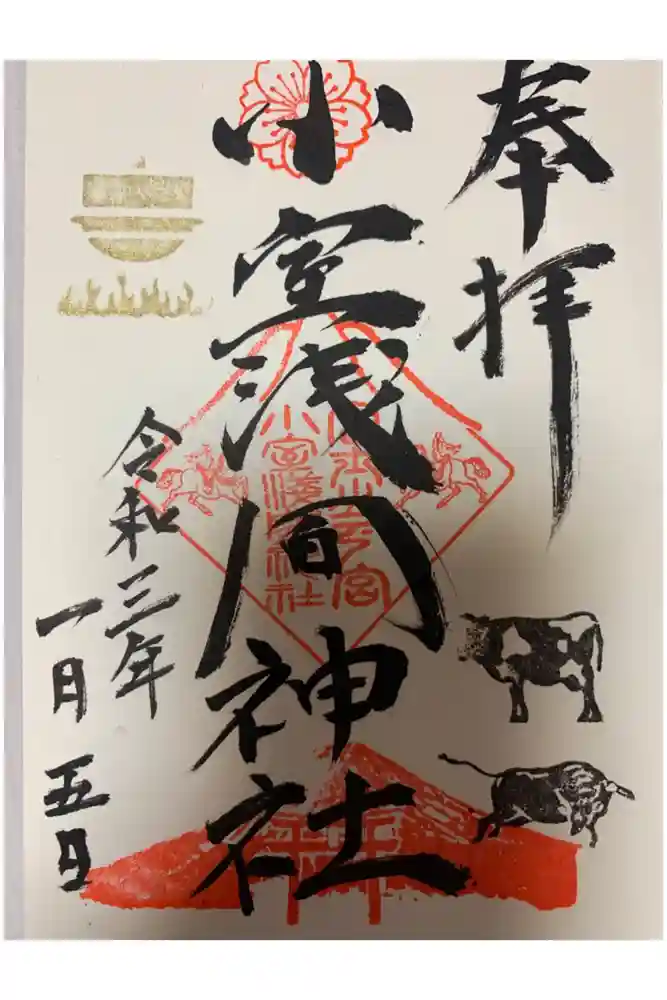 奉拝
小室浅間神社
小室浅間神社
令和三年
一月五日